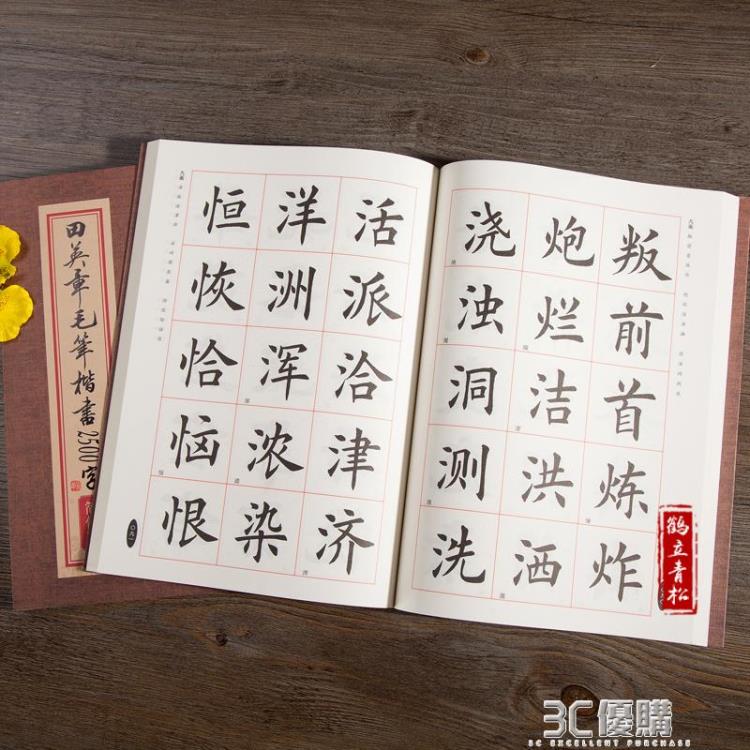 田英章毛笔楷书2500字
恒 洋 活
恢 洲 派
恰 浑 洽
恼 浓 津
恨 染 济
浇 炮 叛
浊 烂 前
洞 洁 首
测 洪 炼
洗 洒 炸
鹤立青松
3C優購
3C EXCELLENT PURCHASE